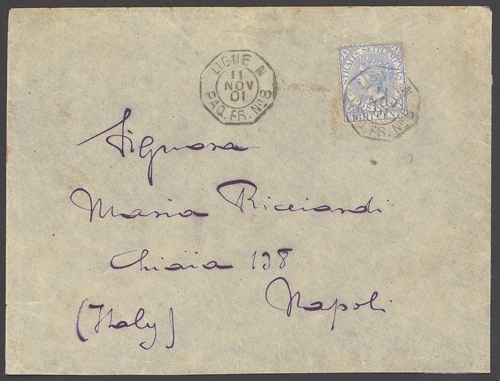 LIGNE N
11
NOV
01
PAQ. FR. No 8
STRAITS SETTLEMENTS
LIGNE N
PAQ. FR. No 8
Signora
Maria Ricciardi
Chiaia 128
Napoli
(Italy)